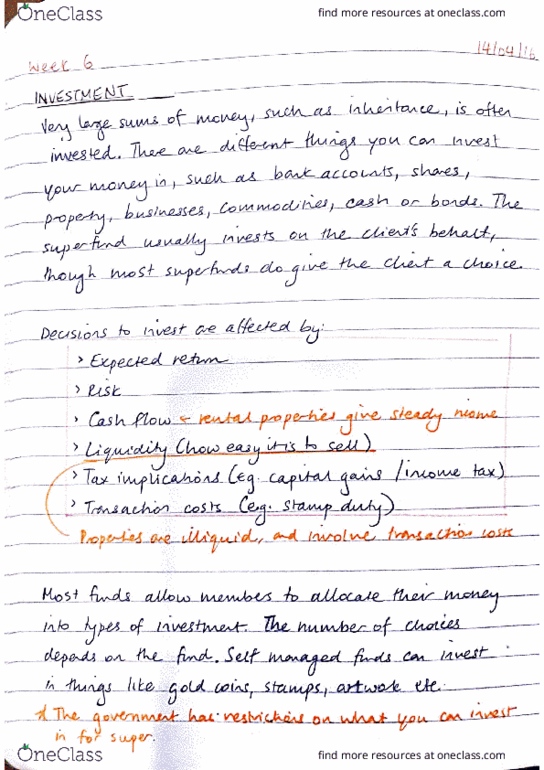 OneClass
find more resources at oneclass.com
14/04/16
Week 6
INVESTMENT
Very large sums of money, such as inheritance, is often
invested. There are different things you can invest
your money in, such as bank accounts, shares,
property, businesses, commodities, cash or bonds. The
superfund usually invests on the client's behalf,
though most superfunds do give the client a choice.
Decisions to invest are affected by:
> Expected return
> Risk
> Cash flow ← rental properties give steady niome
> Liquidity (how easy it is to sell)
> Tax implications (eg. capital gains / income tax)
> Transaction costs (eg. stamp duty)
Properties are illiquid, and involve transaction costs
Most funds allow members to allocate their money
into types of investment. The number of choices
depends on the find. Self managed funds can invest
in things like gold coins, stamps, artwork etc.
* The government has restrictions on what you can invest
in for super.
OneClass
find more resources at oneclass.com